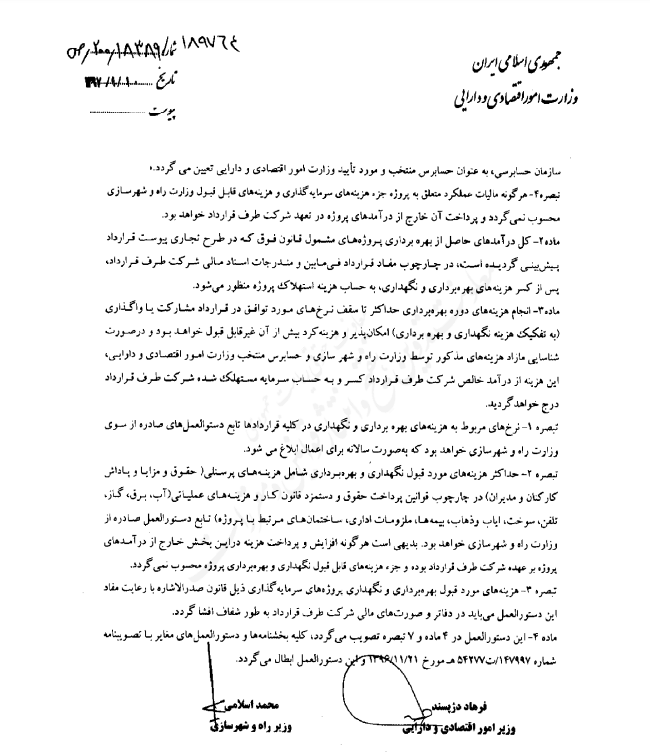 جمهوری اسلامی ایران
وزارت امور اقتصادی و دارایی
شماره
۱۸۹۷۶۴
تاریخ
پیوست
سازمان حسابرسی، به عنوان حسابرس منتخب و مورد تأیید وزارت امور اقتصادی و دارایی تعیین می گردد.»
تبصره۴- هرگونه مالیات عملکرد متعلق به پروژه جزء هزینه‌های سرمایه‌گذاری و هزینه‌های قابل قبول وزارت راه و شهرسازی
محسوب نمی‌گردد و پرداخت آن خارج از درآمدهای پروژه در تعهد شرکت طرف قرارداد خواهد بود.
ماده۲- کل درآمدهای حاصل از بهره برداری پروژه‌های مشمول قانون فوق که در طرح تجاری پیوست قرارداد
پیش‌بینی گردیده است، در چارچوب مفاد قرارداد فی‌مابین و مندرجات اسناد مالی شرکت طرف قرارداد،
پس از کسر هزینه‌های بهره‌برداری و نگهداری، به حساب هزینه استهلاک پروژه منظور می‌شود.
ماده۳- انجام هزینه‌های دوره بهره‌برداری حداکثر تا سقف نرخ‌های مورد توافق در قرارداد مشارکت یا واگذاری
(به تفکیک هزینه نگهداری و بهره برداری) امکان‌پذیر و هزینه‌کرد بیش از آن غیرقابل قبول خواهد بود و درصورت
شناسایی مازاد هزینه‌های مذکور توسط وزارت راه و شهر سازی و حسابرس منتخب وزارت امور اقتصادی و دارایی،
این هزینه از درآمد خالص شرکت طرف قرارداد کسر و به حساب سرمایه مستهلک شده شرکت طرف قرارداد
درج خواهدگردید.
تبصره ۱- نرخ‌های مربوط به هزینه‌های بهره برداری و نگهداری در کلیه قراردادها تابع دستوالعمل‌های صادره از سوی
وزارت راه و شهرسازی خواهد بود که به‌صورت سالانه برای اعمال ابلاغ می شود.
تبصره ۲- حداکثر هزینه‌های مورد قبول نگهداری و بهره‌برداری شامل هزینه‌های پرسنلی( حقوق و مزایا و پاداش
کارکنان و مدیران) در چارچوب قوانین پرداخت حقوق و دستمزد قانون کار و هزینه‌های عملیاتی(آب، برق، گاز،
تلفن، سوخت، ایاب وذهاب، بیمه‌ها، ملزومات اداری، ساختمان‌های مرتبط با پروژه) تابع دستورالعمل صادره از
وزارت راه و شهرسازی خواهد بود. بدیهی است هرگونه افزایش و پرداخت هزینه دراین بخش خارج از درآمدهای
پروژه بر عهده شرکت طرف قرارداد بوده و جزء هزینه‌های قابل قبول نگهداری و بهره‌برداری پروژه محسوب نمی‌گردد.
تبصره ۳- هزینه‌های مورد قبول بهره‌برداری و نگهداری پروژه‌های سرمایه‌گذاری ذیل قانون صدرالاشاره با رعایت مفاد
این دستورالعمل می‌باید در دفاتر و صورت‌های مالی شرکت طرف قرارداد به طور شفاف افشا گردد.
ماده ۴- این دستورالعمل در ۴ ماده و ۷ تبصره تصویب می‌گردد، کلیه بخشنامه‌ها و دستورالعمل‌های مغایر با تصویبنامه
شماره ۱۴۷۹۹۷/ت۵۴۲۷۷هـ مورخ ۱۳۹۶/۱۱/۲۱ و این دستورالعمل ابطال می‌گردد.
فرهاد دژپسند
وزیر امور اقتصادی و دارایی
محمد اسلامی
وزیر راه و شهرسازی